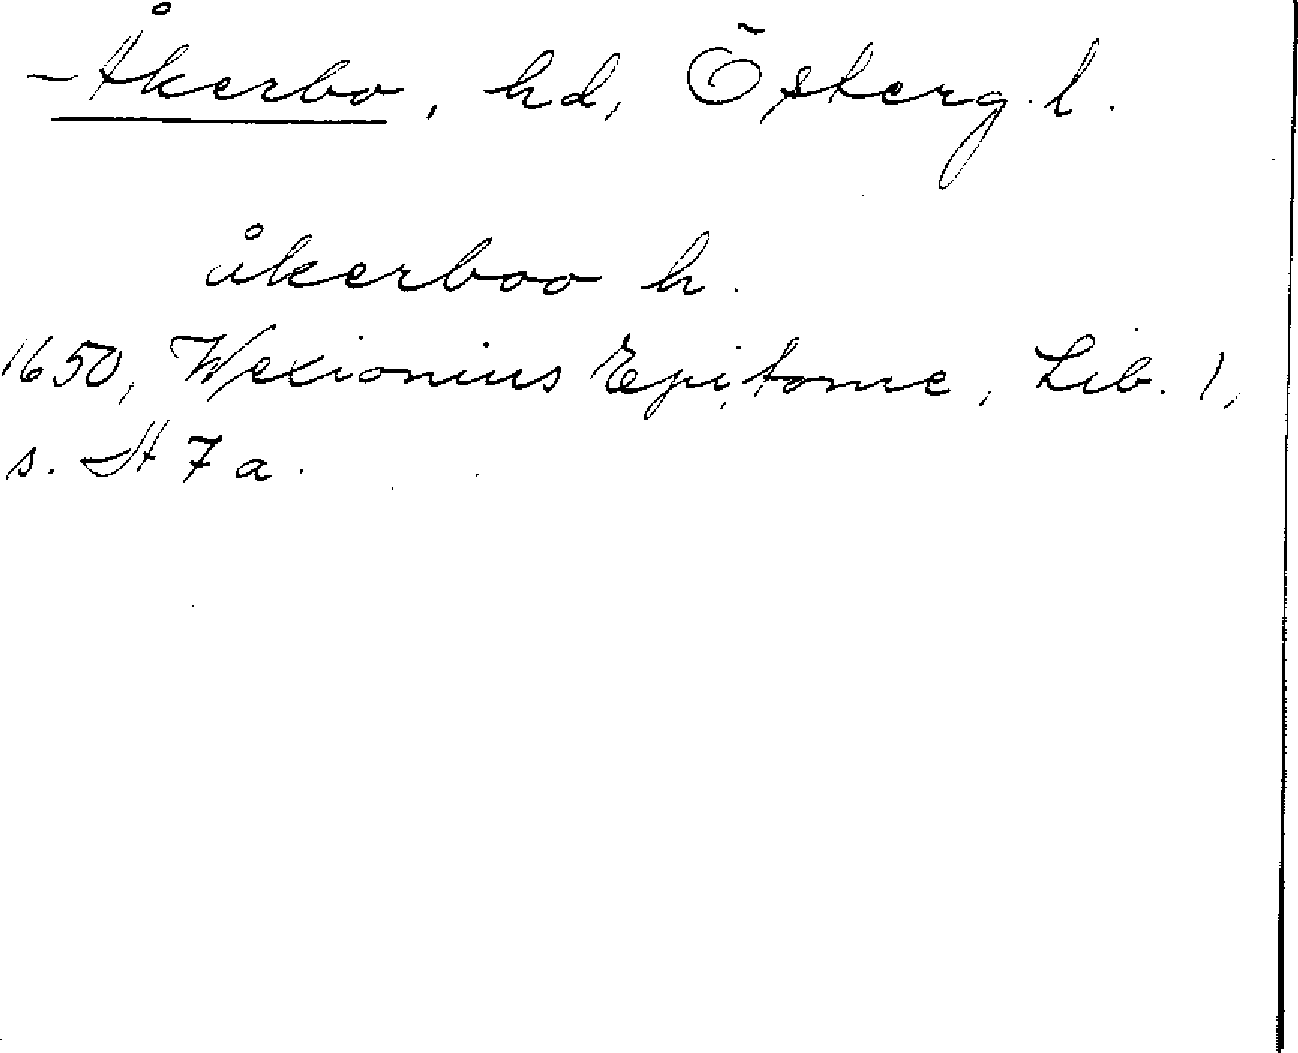 Åkerbo, hd, Österg. l.
åkerboo h.
1650, Wexionius Epitome, Lib. 1,
s. H 7 a.